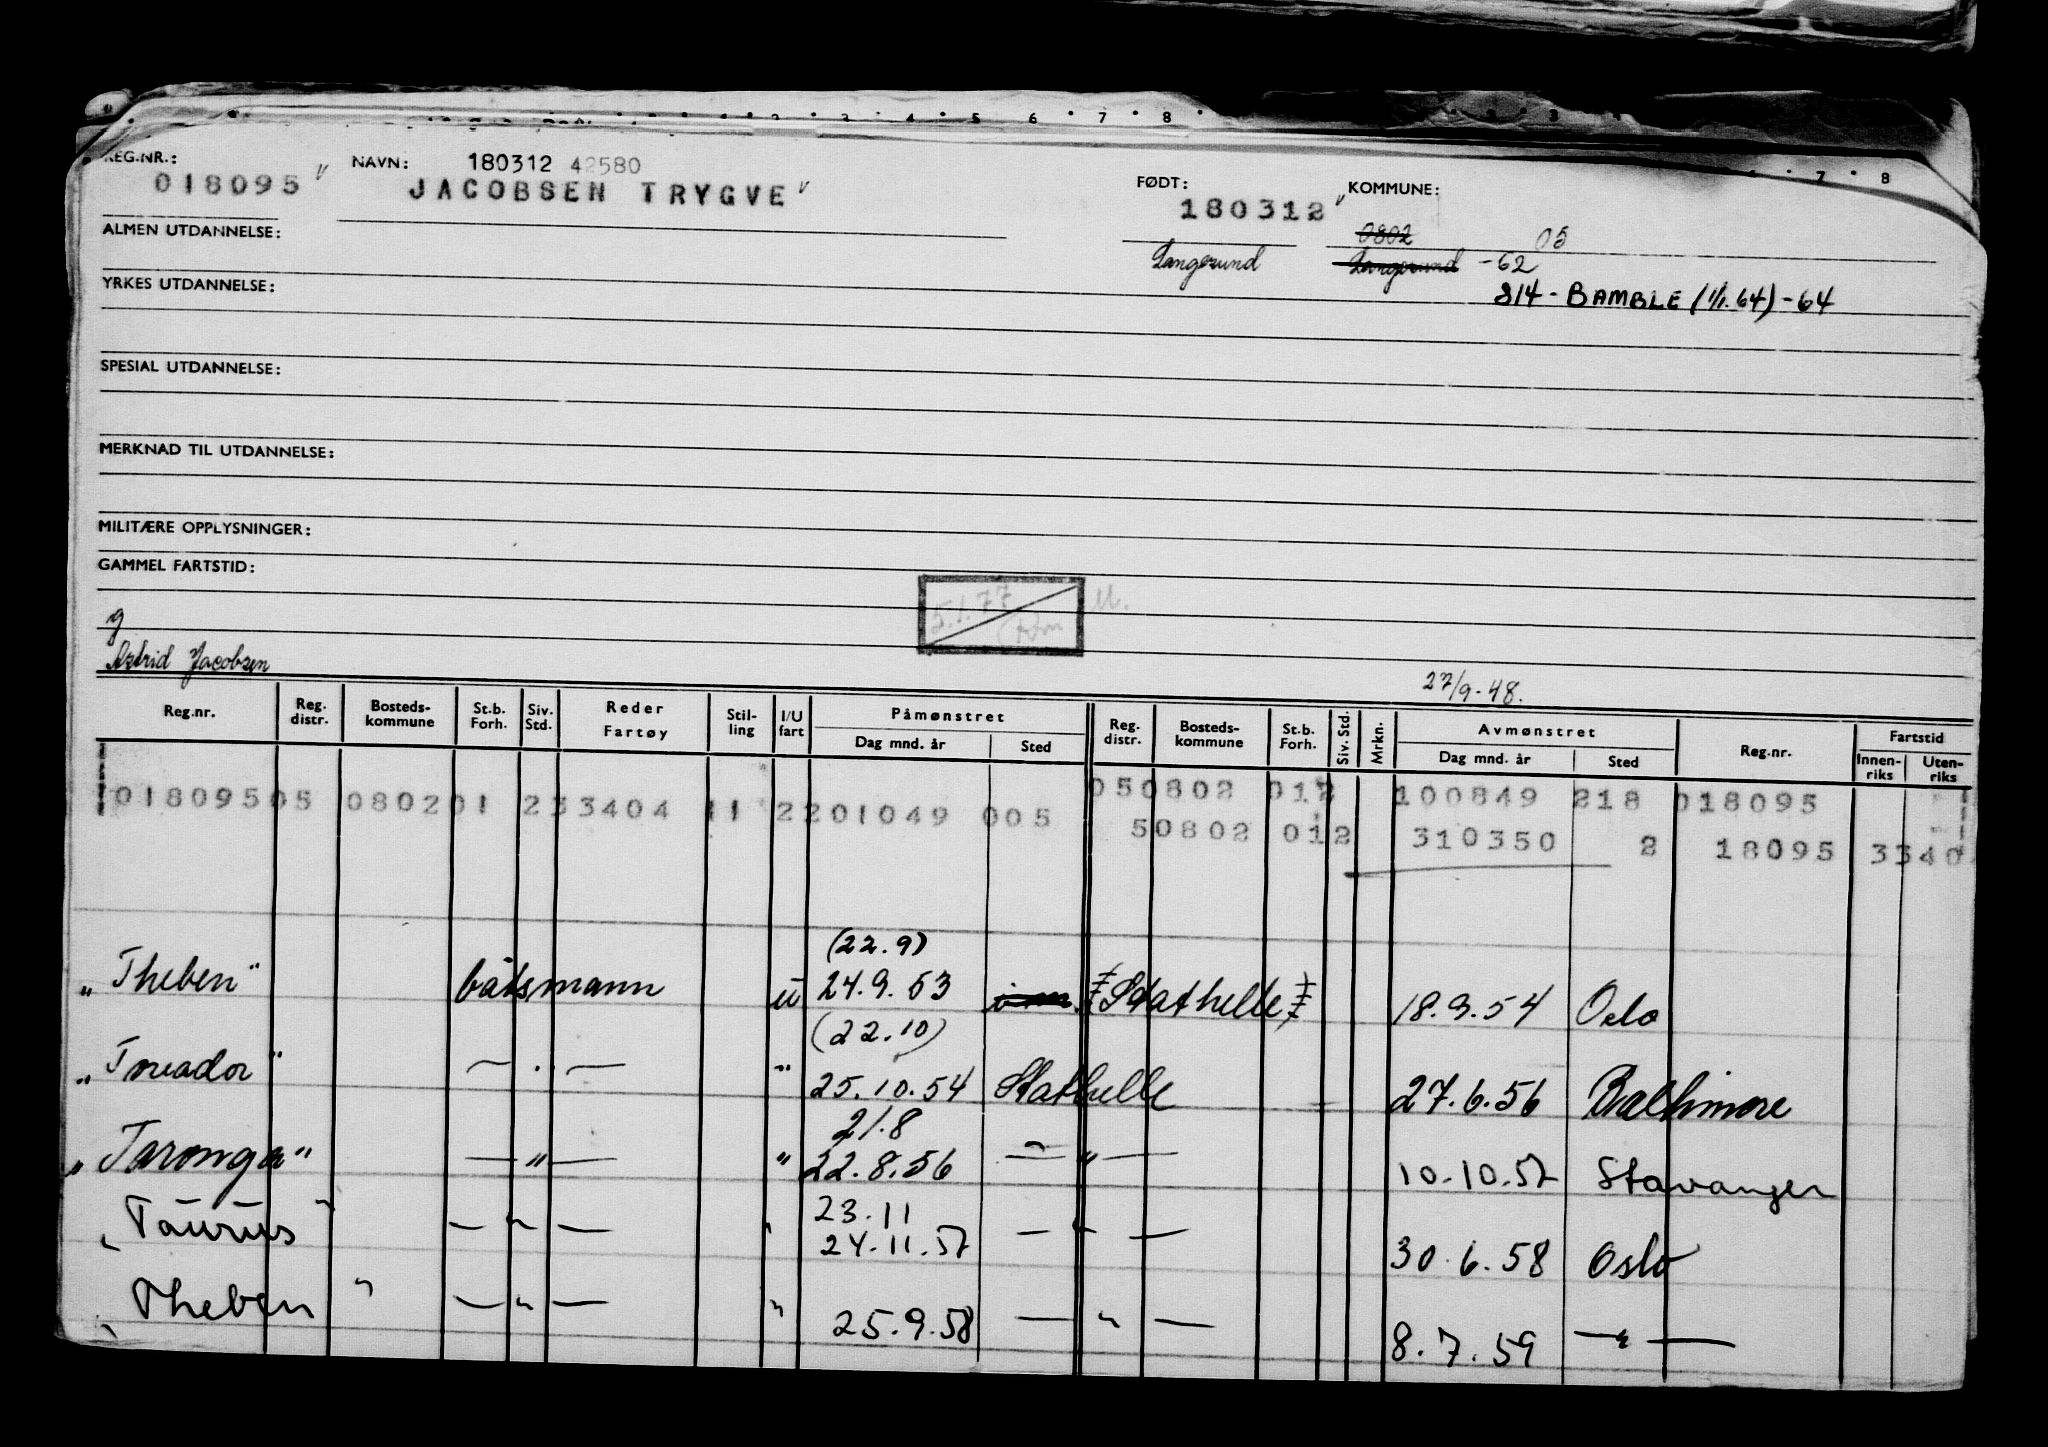 REG.NR.: 018095 NAVN: 180312 42580 JACOBSEN TRYGVE FØDT: 180312 KOMMUNE:
ALMEN UTDANNELSE: 0802 05
Langesund Langesund -62
YRKES UTDANNELSE: 814 - BAMBLE (1/1.64) - 64
SPESIAL UTDANNELSE:
MERKNAD TIL UTDANNELSE:
MILITÆRE OPPLYSNINGER:
GAMMEL FARTSTID:
5.1.77
g
Astrid Jacobsen
27/9-48.
Reg.nr. Reg. distr. Bosteds-kommune St.b. Forh. Siv. Std. Reder Fartøy Stil-ling I/U fart Påmønstret Reg. distr. Bosteds-kommune St.b. Forh. Siv. Std. Mrkn. Avmønstret Reg.nr. Fartstid
Dag mnd. år Sted Dag mnd. år Sted Innen-riks Uten-riks
018095 05 0802 01 2 33404 11 2 201049 005 050802 012 100849 218 018095
50802 012 310350 2 18095 3340
(22.9)
"Theben" båtsmann u 24.9.53 Stathelle 18.9.54 Oslo
(22.10)
"Toreador" — . — " 25.10.54 Stathelle 27.6.56 Baltimore
21.8
"Taronga" — " — " 22.8.56 — " — 10.10.57 Stavanger
23.11
"Taurus" — " — " 24.11.57 — " — 30.6.58 Oslo
"Theben" — " — " 25.9.58 — " — 8.7.59 — " —